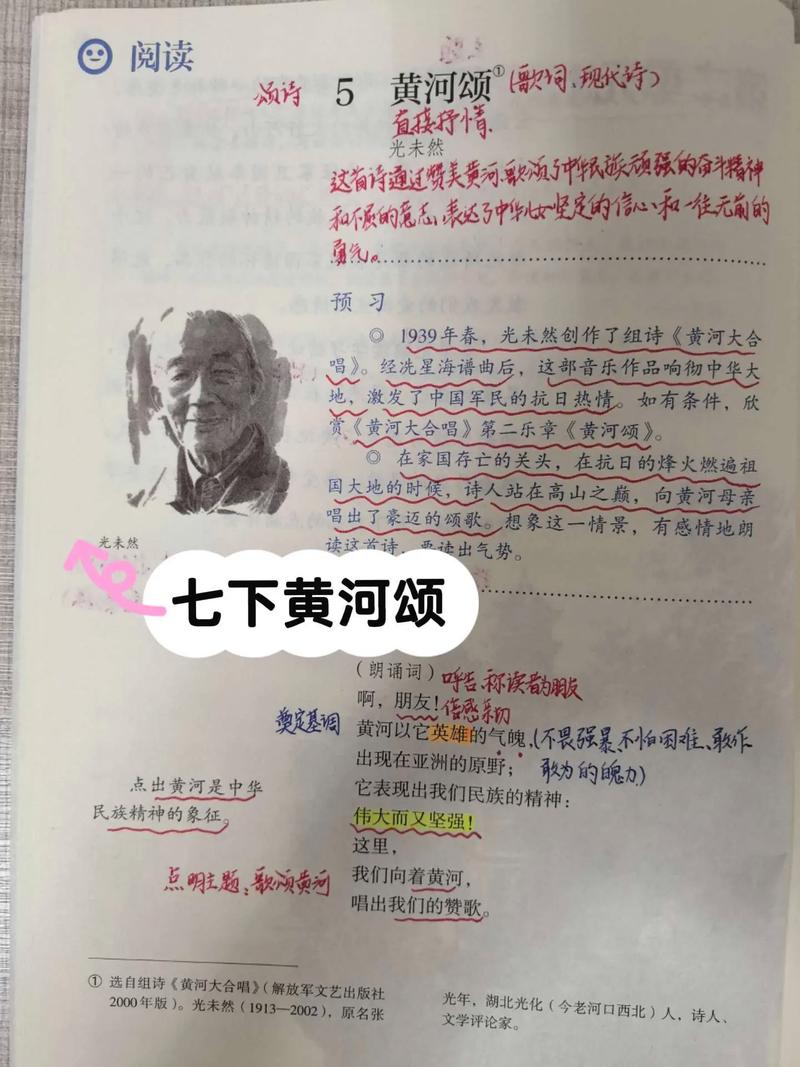 阅读
颂诗 5 黄河颂①(歌词、现代诗)
直接抒情、
光未然
这首诗通过赞美黄河、歌颂了中华民族顽强的奋斗精神
和不屈的意志、表达了中华儿女坚定的信心和一往无前的
勇气。
预习
◎ 1939年春，光未然创作了组诗《黄河大合
唱》。经冼星海谱曲后，这部音乐作品响彻中华大
地，激发了中国军民的抗日热情。如有条件，欣
赏《黄河大合唱》第二乐章《黄河颂》。
◎ 在家国存亡的关头，在抗日的烽火燃遍祖
国大地的时候，诗人站在高山之巅，向黄河母亲
唱出了豪迈的颂歌。想象这一情景，有感情地朗
读这首诗，要读出气势。
光未然
七下黄河颂
（朗诵词）呼告、称读者为朋友
啊，朋友！倍感亲切
奠定基调 黄河以它英雄的气魄，(不畏强暴、不怕困难、敢作
出现在亚洲的原野； 敢为的魄力)
点出黄河是中华
民族精神的象征。
它表现出我们民族的精神：
伟大而又坚强！
这里，
点明主题：歌颂黄河 我们向着黄河，
唱出我们的赞歌。
① 选自组诗《黄河大合唱》（解放军文艺出版社
2000年版）。光未然（1913—2002），原名张
光年，湖北光化（今老河口西北）人，诗人、
文学评论家。